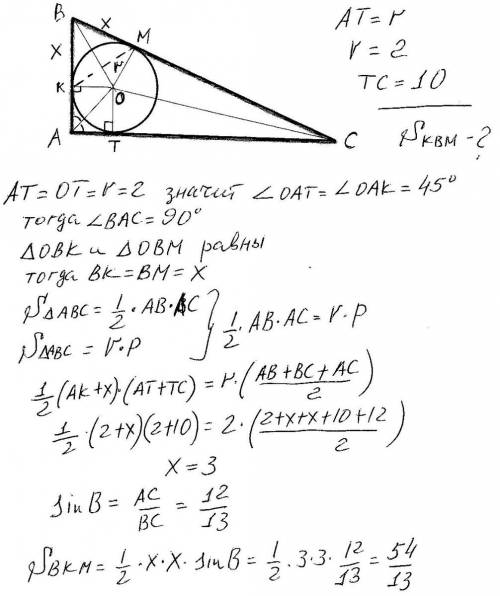 B
x
M
AT = r
x
r = 2
r
TC = 10
K
O
S KBM - ?
A
T
C
AT = OT = r = 2 значит ∠OAT = ∠OAK = 45°
тогда ∠BAC = 90°
△OBK и △OBM равны
тогда BK = BM = x
S△ABC = 1/2 · AB · AC } 1/2 · AB · AC = r · P
S△ABC = r · P
1/2 (AK + x) · (AT + TC) = r · ((AB + BC + AC)/2)
1/2 · (2 + x)(2 + 10) = 2 · ((2 + x + x + 10 + 12)/2)
x = 3
sin B = AC/BC = 12/13
S BKM = 1/2 · x · x · sin B = 1/2 · 3 · 3 · 12/13 = 54/13